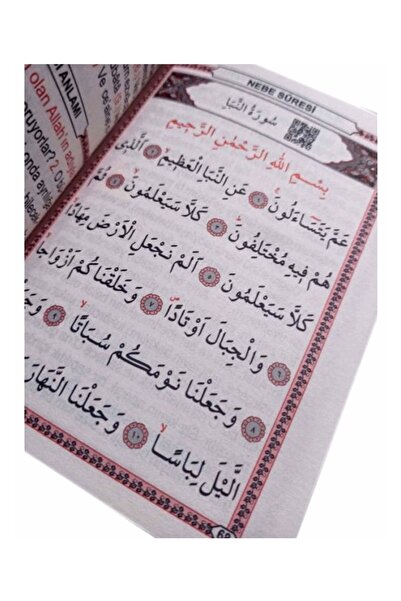 NEBE SÛRESİ
سُورَةُ النَّبَأِ
بِسْمِ اللّٰهِ الرَّحْمٰنِ الرَّحٖيمِ
عَمَّ يَتَسَٓاءَلُونَۚ ﴿١﴾ عَنِ النَّبَاِ الْعَظٖيمِۙ ﴿٢﴾ اَلَّذٖى
هُمْ فٖيهِ مُخْتَلِفُونَؕ ﴿٣﴾ كَلَّا سَيَعْلَمُونَۙ ﴿٤﴾ ثُمَّ
كَلَّا سَيَعْلَمُونَ ﴿٥﴾ اَلَمْ نَجْعَلِ الْاَرْضَ مِهَادًاۙ
﴿٦﴾ وَالْجِبَالَ اَوْتَادًاۙ ﴿٧﴾ وَخَلَقْنَاكُمْ اَزْوَاجًاۙ
﴿٨﴾ وَجَعَلْنَا نَوْمَكُمْ سُبَاتًاۙ ﴿٩﴾
الَّيْلَ لِبَاسًاۙ ﴿١٠﴾ وَجَعَلْنَا النَّهَارَ
ANLAMI
olan Allah'ın